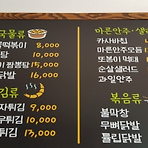 국물류
떡볶이 8,000
탕 10,000
짬뽕탕 15,000
닭발 16,000
김류
자튀김 9,000
튀김 10,000
튀김 13,000
마른안주·샐
카사바칩
마른안주모듬
또봉이 먹태
순살샐러드
과일안주
볶음류
불막창
무뼈닭발
튤립닭발